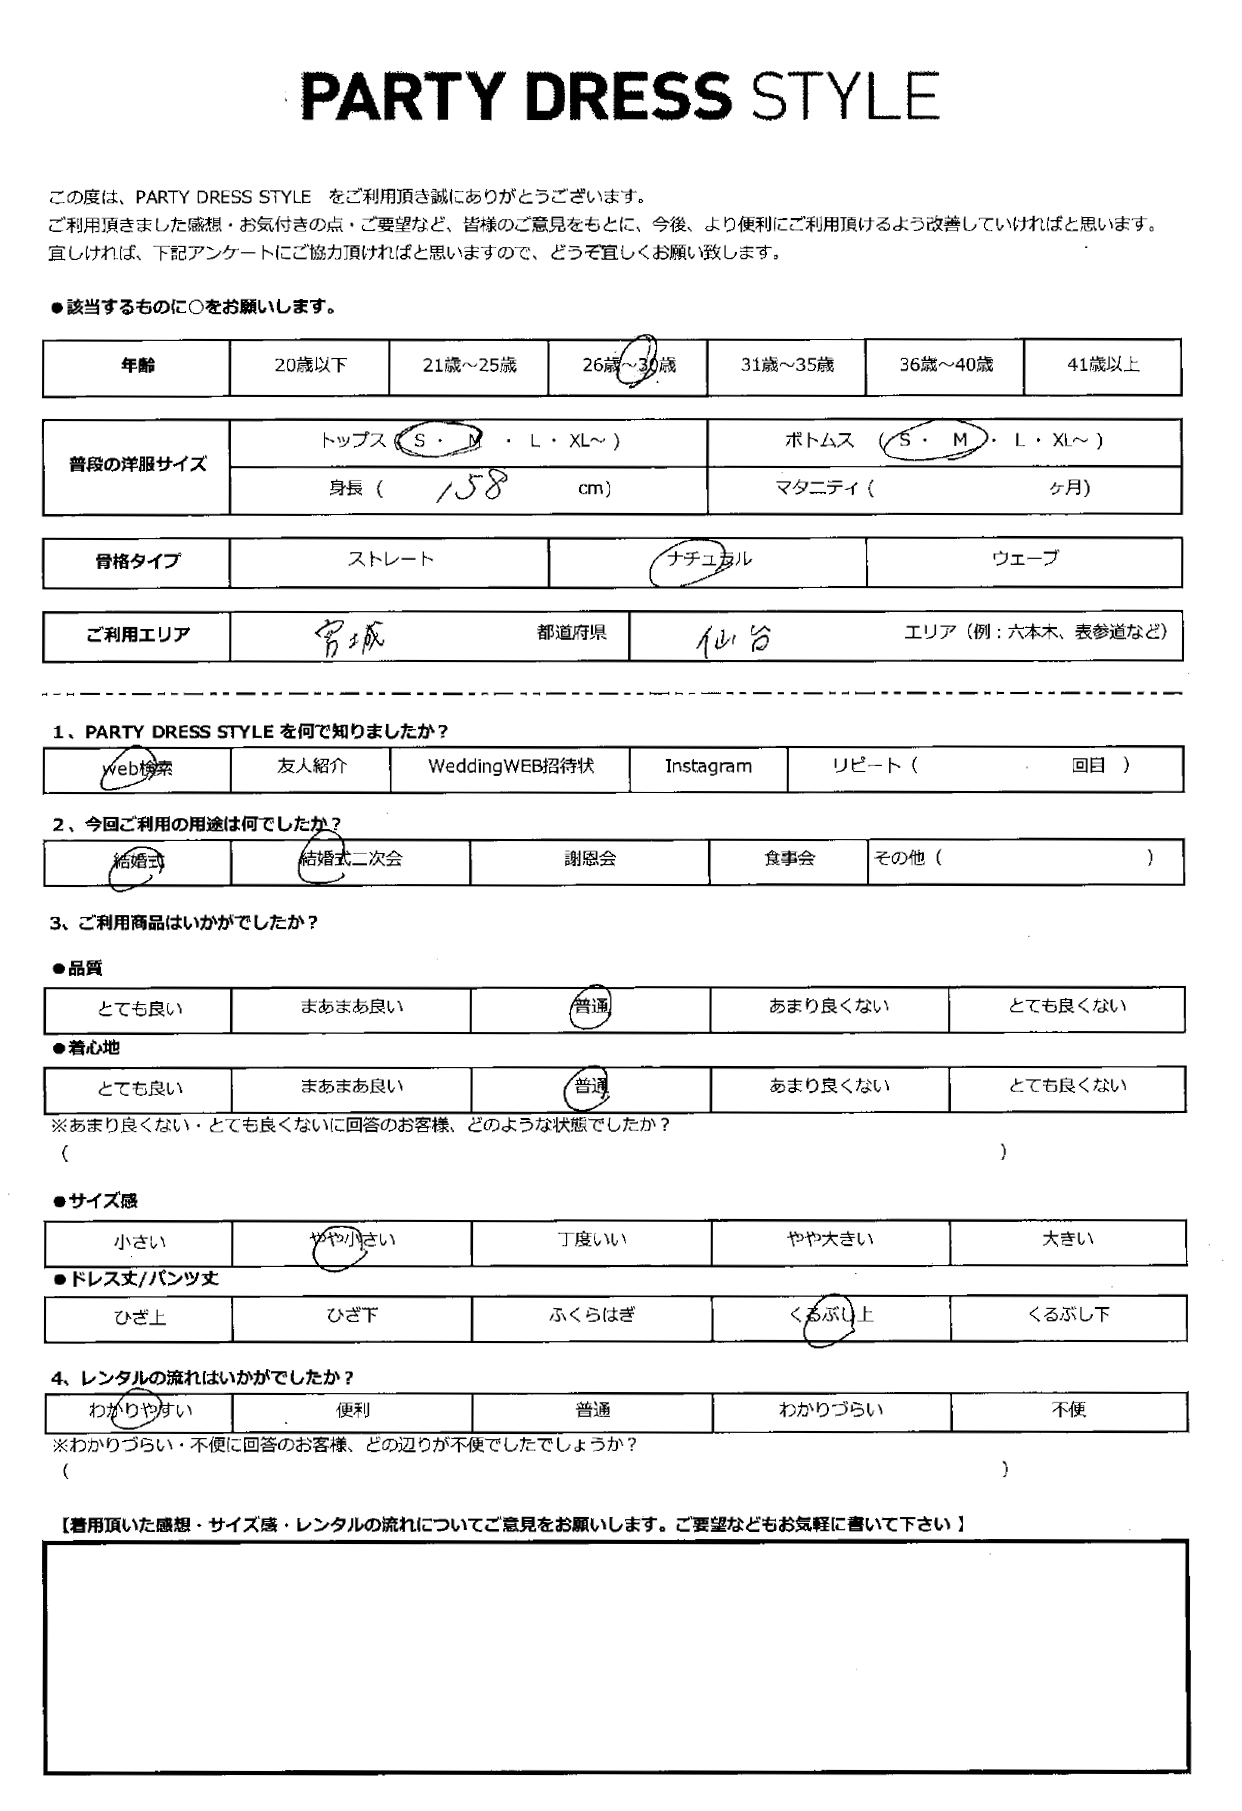 PARTY DRESS STYLE
この度は、PARTY DRESS STYLE　をご利用頂き誠にありがとうございます。
ご利用頂きました感想・お気付きの点・ご要望など、皆様のご意見をもとに、今後、より便利にご利用頂けるよう改善していければと思います。
宜しければ、下記アンケートにご協力頂ければと思いますので、どうぞ宜しくお願い致します。
●該当するものに○をお願いします。
年齢 20歳以下 21歳～25歳 26歳～30歳 31歳～35歳 36歳～40歳 41歳以上
普段の洋服サイズ トップス ( S ・ M ・ L ・ XL～ ) ボトムス ( S ・ M ・ L ・ XL～ )
身長 ( 158 cm) マタニティ ( ヶ月)
骨格タイプ ストレート ナチュラル ウェーブ
ご利用エリア 宮城 都道府県 仙台 エリア（例：六本木、表参道など）
1、PARTY DRESS STYLE を何で知りましたか？
web検索 友人紹介 WeddingWEB招待状 Instagram リピート ( 回目 )
2、今回ご利用の用途は何でしたか？
結婚式 結婚式二次会 謝恩会 食事会 その他 ( )
3、ご利用商品はいかがでしたか？
●品質
とても良い まあまあ良い 普通 あまり良くない とても良くない
●着心地
とても良い まあまあ良い 普通 あまり良くない とても良くない
※あまり良くない・とても良くないに回答のお客様、どのような状態でしたか？
( )
●サイズ感
小さい やや小さい 丁度いい やや大きい 大きい
●ドレス丈/パンツ丈
ひざ上 ひざ下 ふくらはぎ くるぶし上 くるぶし下
4、レンタルの流れはいかがでしたか？
わかりやすい 便利 普通 わかりづらい 不便
※わかりづらい・不便に回答のお客様、どの辺りが不便でしたでしょうか？
( )
【着用頂いた感想・サイズ感・レンタルの流れについてご意見をお願いします。ご要望などもお気軽に書いて下さい 】